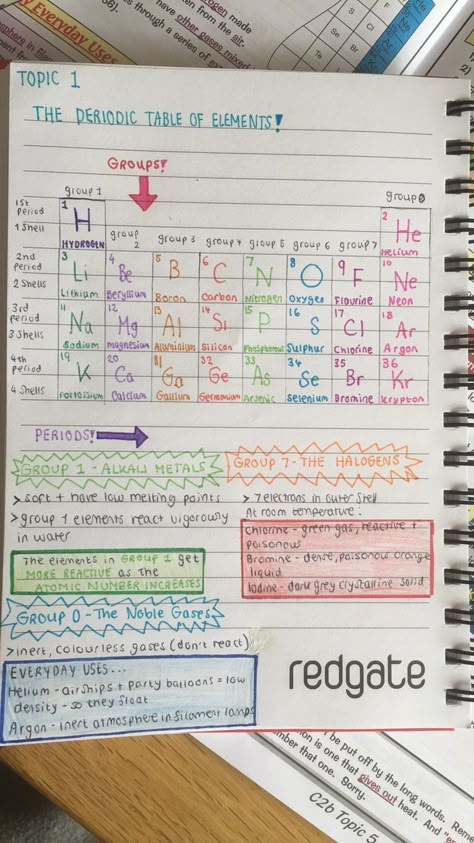 TOPIC 1
THE PERIODIC TABLE OF ELEMENTS!
GROUPS!
group 1
group 0
1st Period
1 Shell
1 H HYDROGEN
2 He Helium
group 2
group 3
group 4
group 5
group 6
group 7
2nd Period
2 Shells
3 Li Lithium
4 Be Beryllium
5 B Boron
6 C Carbon
7 N Nitrogen
8 O Oxygen
9 F Flourine
10 Ne Neon
3rd Period
3 Shells
11 Na Sodium
12 Mg magnesium
13 Al Aluminium
14 Si Silicon
15 P Phosphorus
16 S Sulphur
17 Cl Chlorine
18 Ar Argon
4th Period
4 Shells
19 K Potassium
20 Ca Calcium
31 Ga Gallium
32 Ge Germanium
33 As Arsenic
34 Se Selenium
35 Br Bromine
36 Kr Krypton
PERIODS!
GROUP 1 - ALKALI METALS
> soft + have low melting points
> group 1 elements react vigorously
in water
The elements in GROUP 1 get
MORE REACTIVE as the
ATOMIC NUMBER INCREASES
GROUP 7 - THE HALOGENS
> 7 electrons in outer shell
At room temperature:
Chlorine - green gas, reactive +
poisonous
Bromine - dense, poisonous orange
liquid
Iodine - dark grey crystalline solid
GROUP 0 - The Noble Gases
> inert, colourless gases (don't react)
EVERYDAY USES...
Helium - airships + party balloons = low
density - so they float
Argon - Inert atmosphere in filament lamps
redgate
Everyday Uses
have other gases mixed
from the air.
through a series of
S
Cl
Se
Br
Te
be put off by the long words.
is one that gives out heat. And
that one. Sorry.
C2b Topic 5